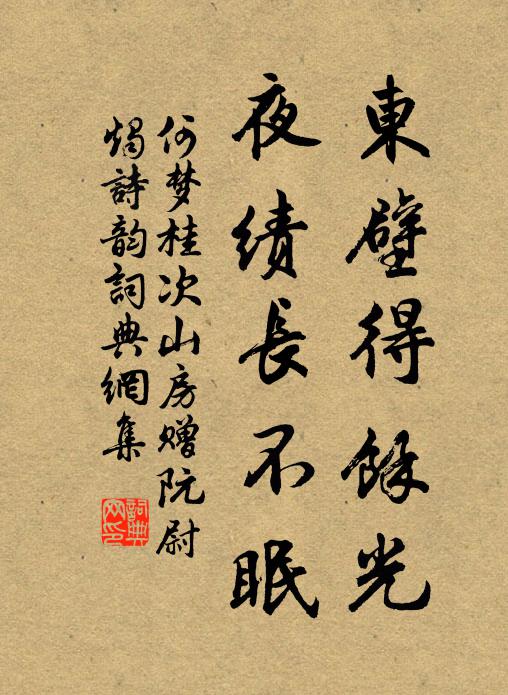 東壁得餘光
夜绩長不眠
何梦桂次山房赠阮尉
烛詩韵詞典網集
詞典
网印